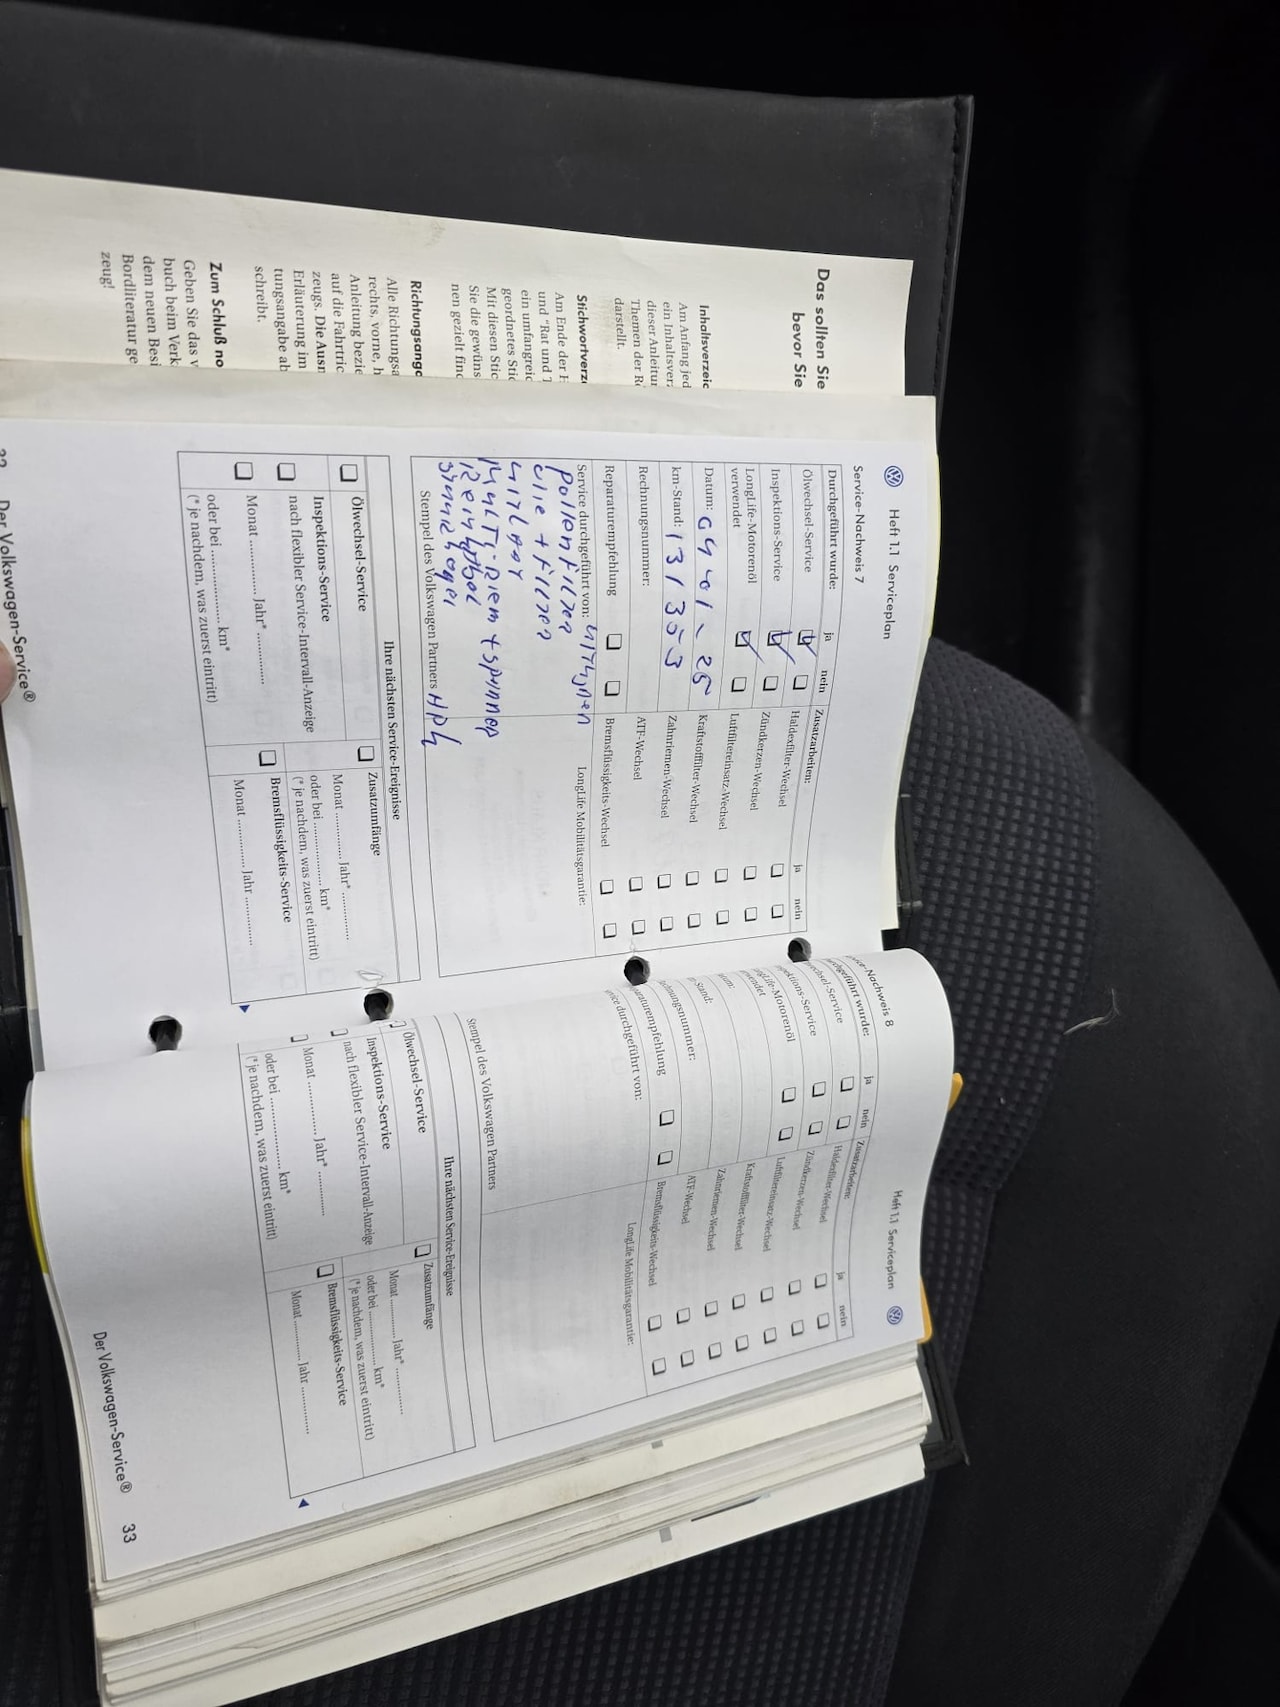 Das sollten Sie
bevor Sie
Inhaltsverzeic
Am Anfang jed
ein Inhaltsverz
dieser Anleitur
darstellt.
Stichwortverz
Am Ende der H
und "Rat und T
ein umfangreic
geordnetes Stic
Mit diesen Stic
Sie die gewüns
nen gezielt find
Richtungsang
Alle Richtungsa
rechts, vorne, h
Anleitung bezie
auf die Fahrtric
zeugs. Die Ausn
Erläuterung im
tungsangabe ab
schreibt.
Zum Schluß no
Geben Sie das v
buch beim Verk
dem neuen Besi
Bordliteratur ge
zeug!
Heft 1.1 Serviceplan
Service-Nachweis 7
Durchgeführt wurde: ja nein
Ölwechsel-Service
Inspektions-Service
LongLife-Motorenöl
verwendet
Datum:
km-Stand: 131353
Rechnungsnummer:
Reparaturempfehlung
Service durchgeführt von:
Pollenfilter
+ Filter
Stempel des Volkswagen Partners
Zusatzarbeiten: ja nein
Haldexfilter-Wechsel
Zündkerzen-Wechsel
Luftfiltereinsatz-Wechsel
Kraftstofffilter-Wechsel
Zahnriemen-Wechsel
ATF-Wechsel
Bremsflüssigkeits-Wechsel
LongLife Mobilitätsgarantie:
Ihre nächsten Service-Ereignisse
Ölwechsel-Service
Inspektions-Service
nach flexibler Service-Intervall-Anzeige
Monat .............. Jahr* ..............
oder bei .................... km*
(* je nachdem, was zuerst eintritt)
Zusatzumfänge
Monat ............ Jahr* ............
oder bei ................ km*
(* je nachdem, was zuerst eintritt)
Bremsflüssigkeits-Service
Monat .............. Jahr ..............
Der Volkswagen-Service®
Heft 1.1 Serviceplan
vice-Nachweis 8
urchgeführt wurde: ja nein
wechsel-Service
pektions-Service
ngLife-Motorenöl
wendet
tum:
-Stand:
chnungsnummer:
paraturempfehlung
vice durchgeführt von:
Stempel des Volkswagen Partners
Zusatzarbeiten: ja nein
Haldexfilter-Wechsel
Zündkerzen-Wechsel
Luftfiltereinsatz-Wechsel
Kraftstofffilter-Wechsel
Zahnriemen-Wechsel
ATF-Wechsel
Bremsflüssigkeits-Wechsel
LongLife Mobilitätsgarantie:
Ihre nächsten Service-Ereignisse
Ölwechsel-Service
Inspektions-Service
nach flexibler Service-Intervall-Anzeige
Monat .............. Jahr* ..............
oder bei .................... km*
(* je nachdem, was zuerst eintritt)
Zusatzumfänge
Monat ............ Jahr* ............
oder bei ................ km*
(* je nachdem, was zuerst eintritt)
Bremsflüssigkeits-Service
Monat .............. Jahr ..............
Der Volkswagen-Service® 33